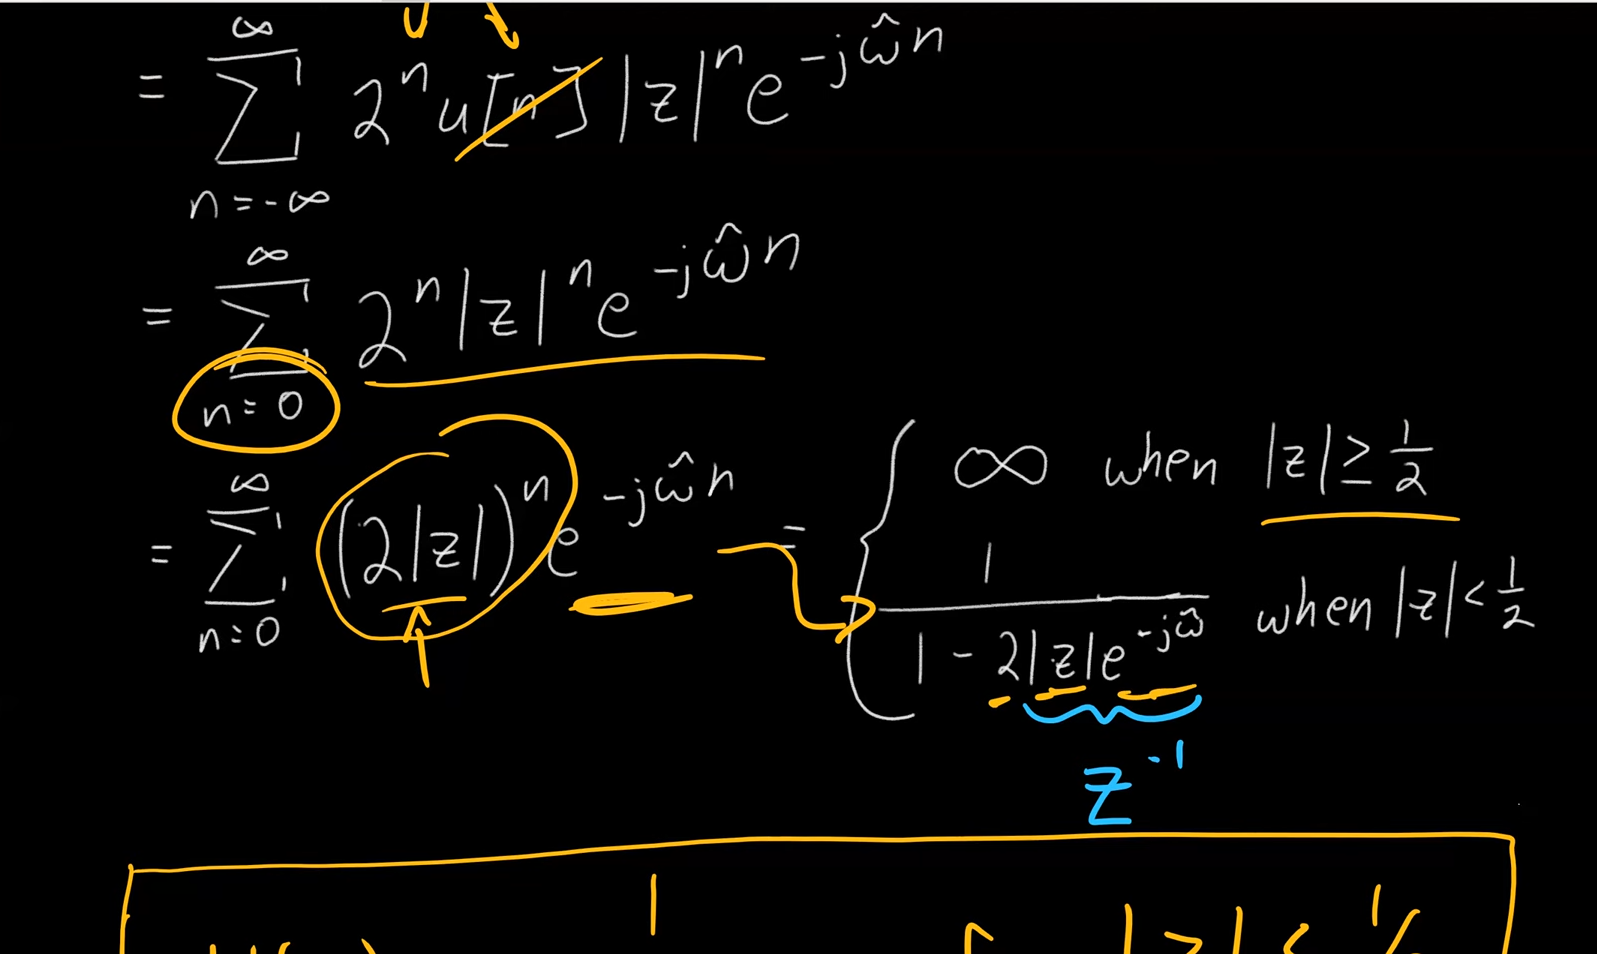 = ∑_{n=-∞}^{∞} 2^n u[n] |z|^n e^{-jω̂n}
= ∑_{n=0}^{∞} 2^n |z|^n e^{-jω̂n}
= ∑_{n=0}^{∞} (2|z|)^n e^{-jω̂n} = { ∞ when |z| ≥ 1/2
1/(1 - 2|z|e^{-jω̂}) when |z| < 1/2
z^{-1}